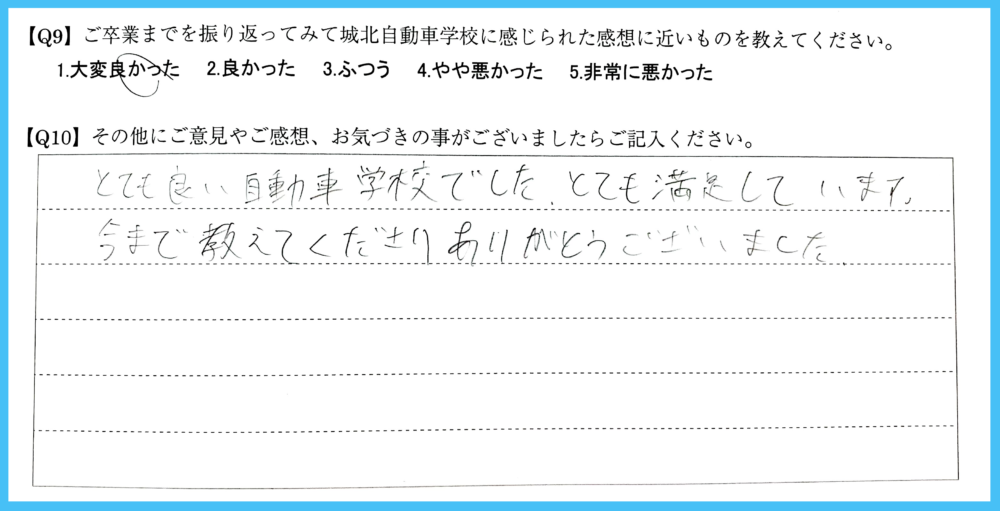 【Q9】ご卒業までを振り返ってみて城北自動車学校に感じられた感想に近いものを教えてください。
1.大変良かった 2.良かった 3.ふつう 4.やや悪かった 5.非常に悪かった
【Q10】その他にご意見やご感想、お気づきの事がございましたらご記入ください。
とても良い自動車学校でした。とても満足しています。
今まで教えてくださりありがとうございました。